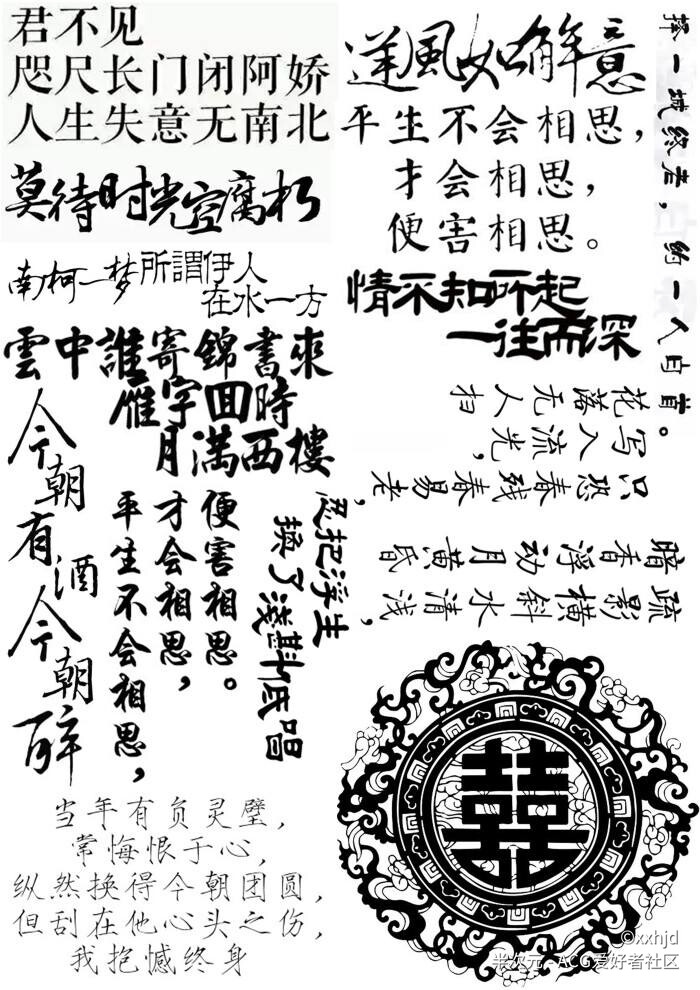 君不见
咫尺长门闭阿娇
人生失意无南北
莫待时光空腐朽
南柯一梦
所謂伊人
在水一方
雲中誰寄錦書來
雁字回時
月满西樓
今朝有酒今朝醉
便害相思。
才会相思，
平生不会相思，
忍把浮生
换了淺斟低唱
当年有负灵璧，
常悔恨于心，
纵然换得今朝团圆，
但刮在他心头之伤，
我抱憾终身
逆風如解意
平生不会相思，
才会相思，
便害相思。
情不知所起
一往而深
择一城终老，约一人白首。
花落无人扫
写入流光，
只恐春残春易老，
暗香浮动月黄昏
疏影横斜水清浅，
囍
©xxhjd
半次元 - ACG爱好者社区